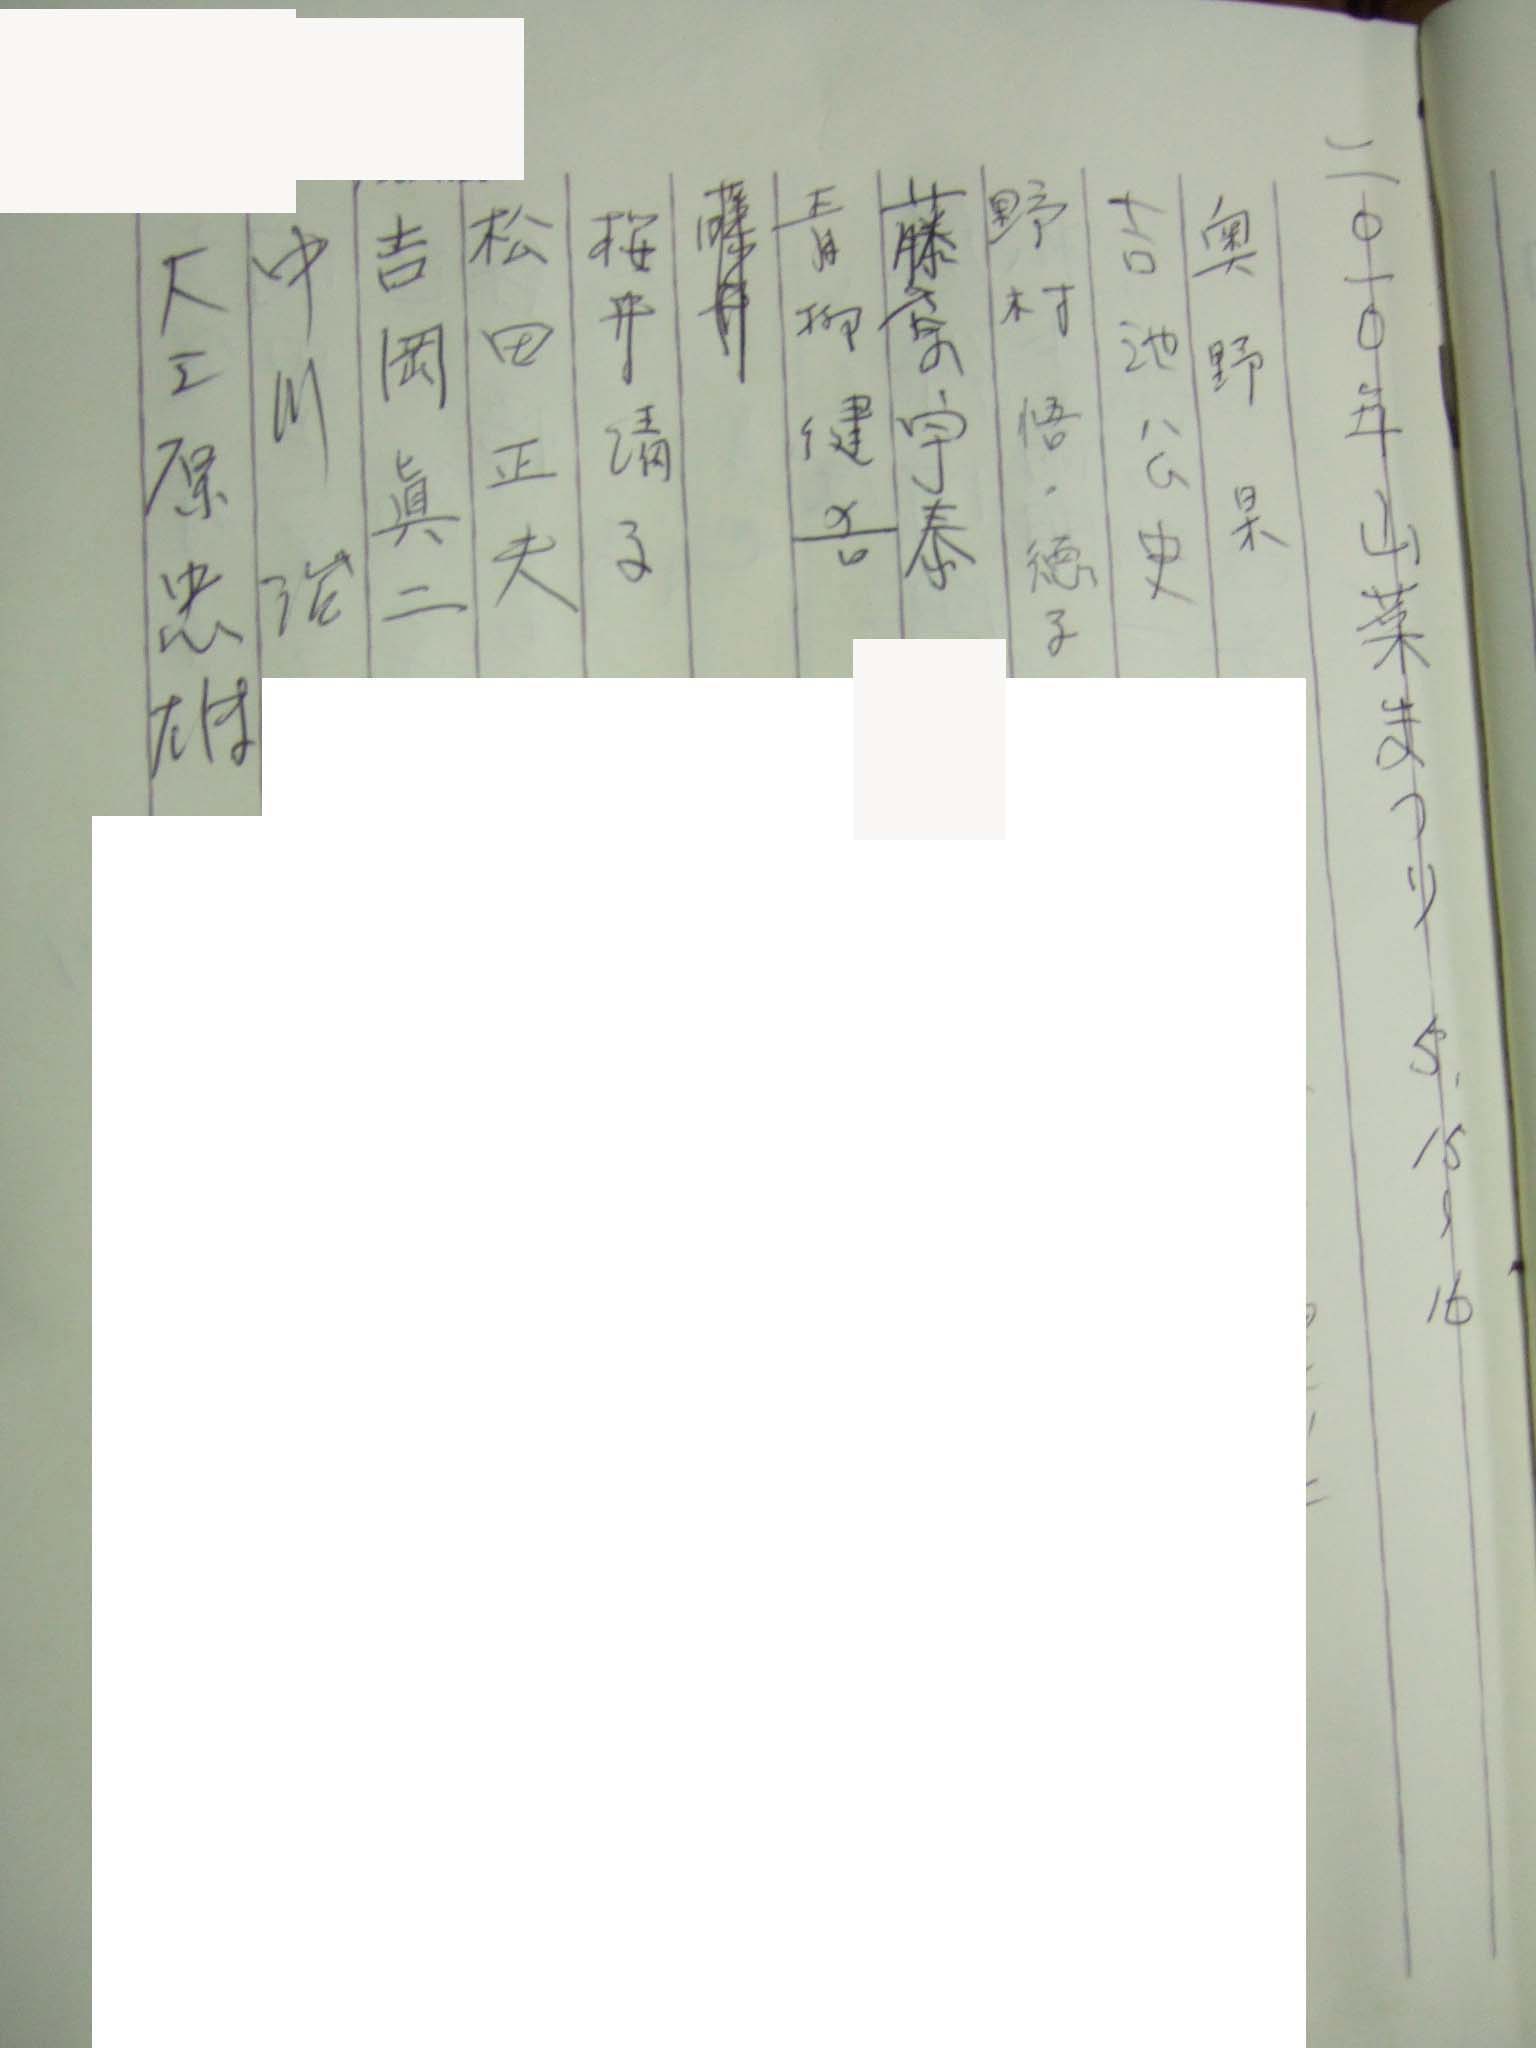 二〇一〇年山菜まつり 5.15〜16
奥野 果
吉池公史
野村 悟・徳子
藤倉宇泰
青柳健
藤井
桜井清子
松田正夫
吉岡眞二
中川 治
大工原忠雄